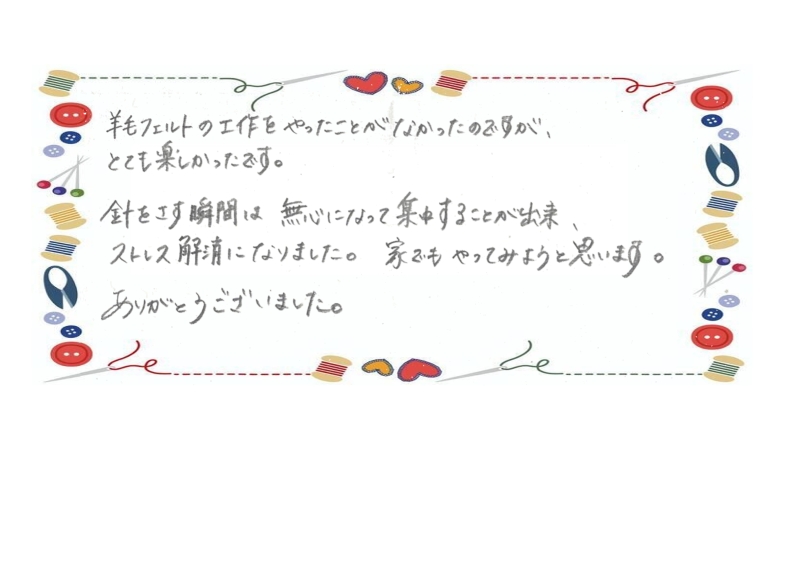 羊毛フェルトの工作をやったことがなかったのですが、
とても楽しかったです。
針をさす瞬間は 無心になって集中することが出来、
ストレス解消になりました。 家でもやってみようと思います。
ありがとうございました。